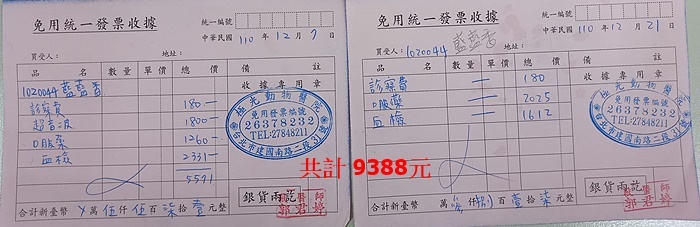 免用統一發票收據
統一編號
中華民國 110 年 12 月 7 日
買受人： 地址：
品名 數量 單價 總價 備註
收據專用章
1020044 藍藍香
診察費 180—
超音波 1820—
口服藥 1260—
血檢 2331—
5591
極光動物醫院
免用發票編號
26378232
TEL:27848211
台北市建國南路二段31號
銀貨兩訖
合計新臺幣 萬 伍 仟 伍 百 柒 拾 壹 元整
獸醫師
郭君婷
免用統一發票收據
統一編號
中華民國 110 年 12 月 21 日
買受人：1020044 藍藍香 地址：
品名 數量 單價 總價 備註
收據專用章
診察費 一 180
口服藥 一 2025
血檢 一 1612
極光動物醫院
免用發票編號
26378232
TEL:27848211
台北市建國南路二段31號
共計 9388元
銀貨兩訖
合計新臺幣 萬 仟 捌 百 壹 拾 柒 元整
獸醫師
郭君婷